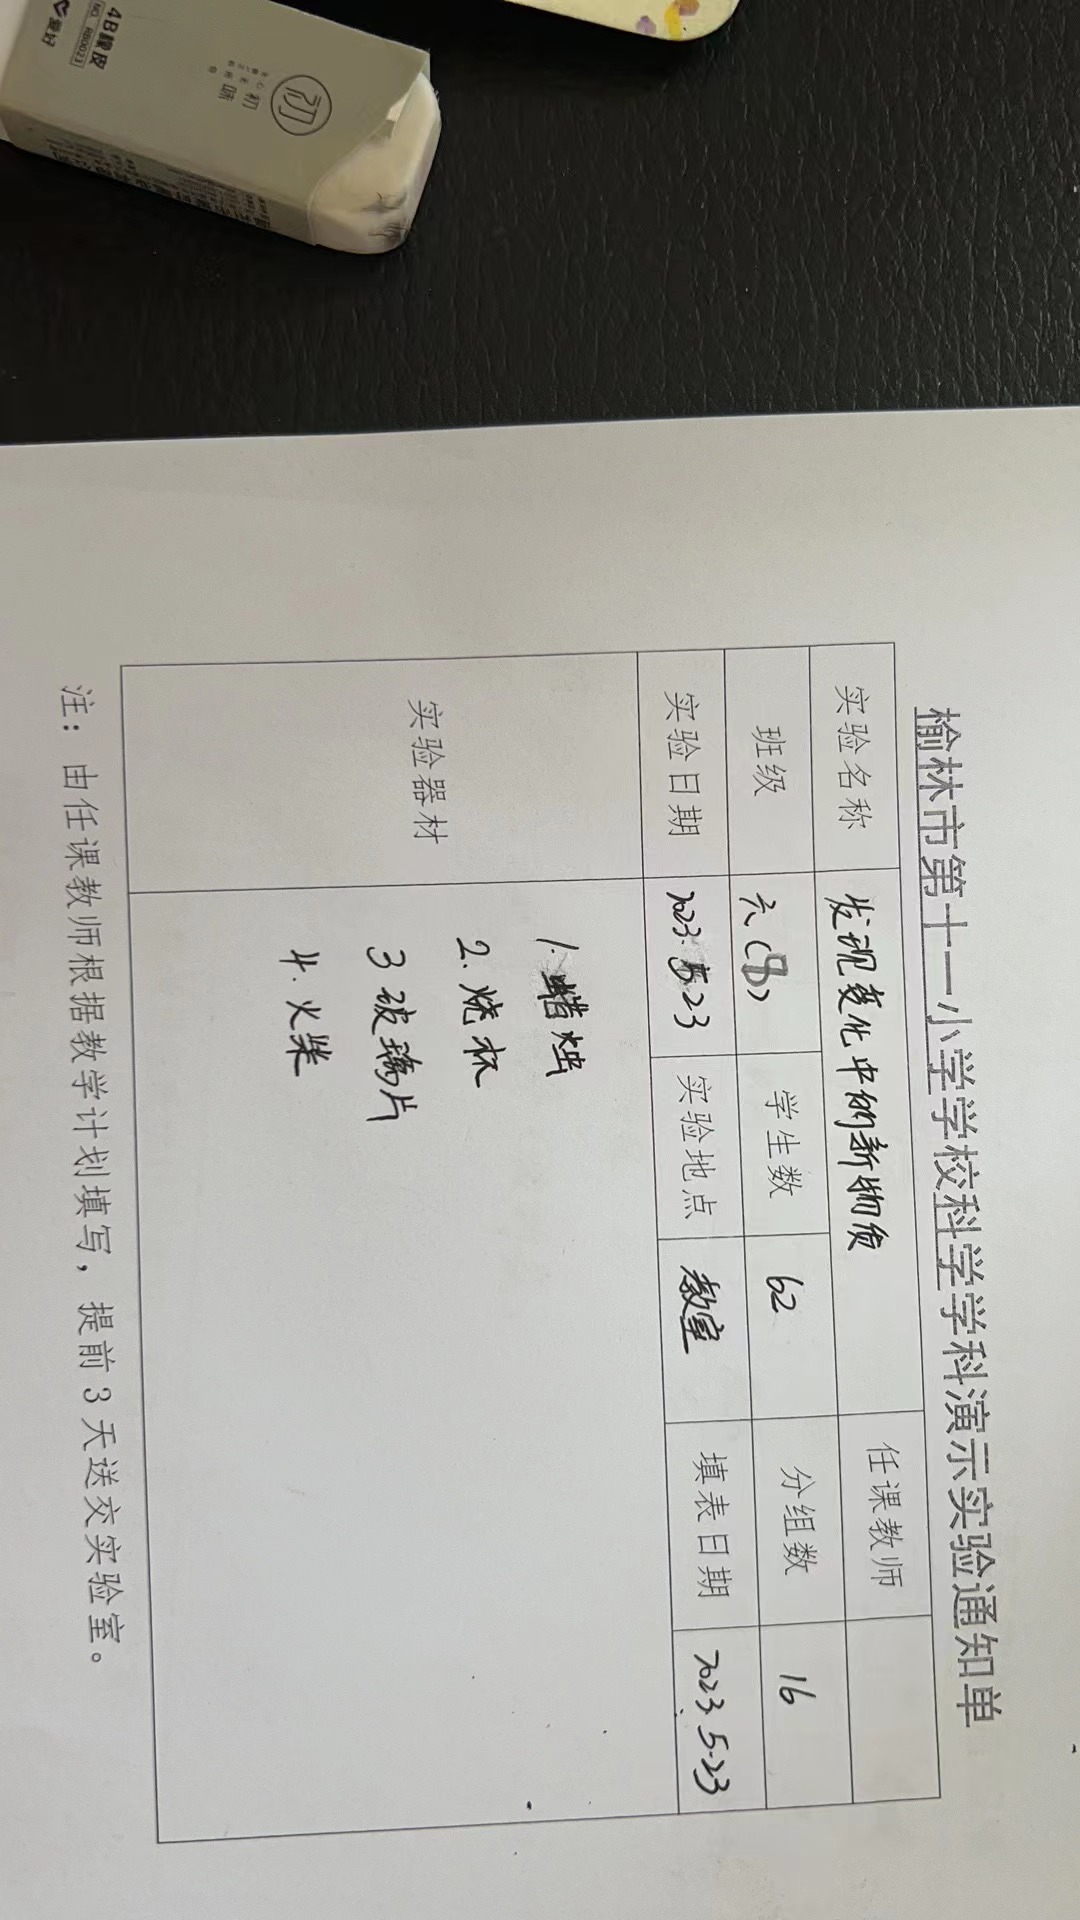 4B橡皮
NO. RB0023
爱好
初
初
味
榆林市第十一小学学校科学学科演示实验通知单
实验名称 发现变化中的新物质 任课教师
班级 六(8) 学生数 62 分组数 16
实验日期 2023.5.23 实验地点 教室 填表日期 2023.5.23
实验器材
1. 蜡烛
2. 烧杯
3 玻璃片
4. 火柴
注：由任课教师根据教学计划填写，提前3天送交实验室。